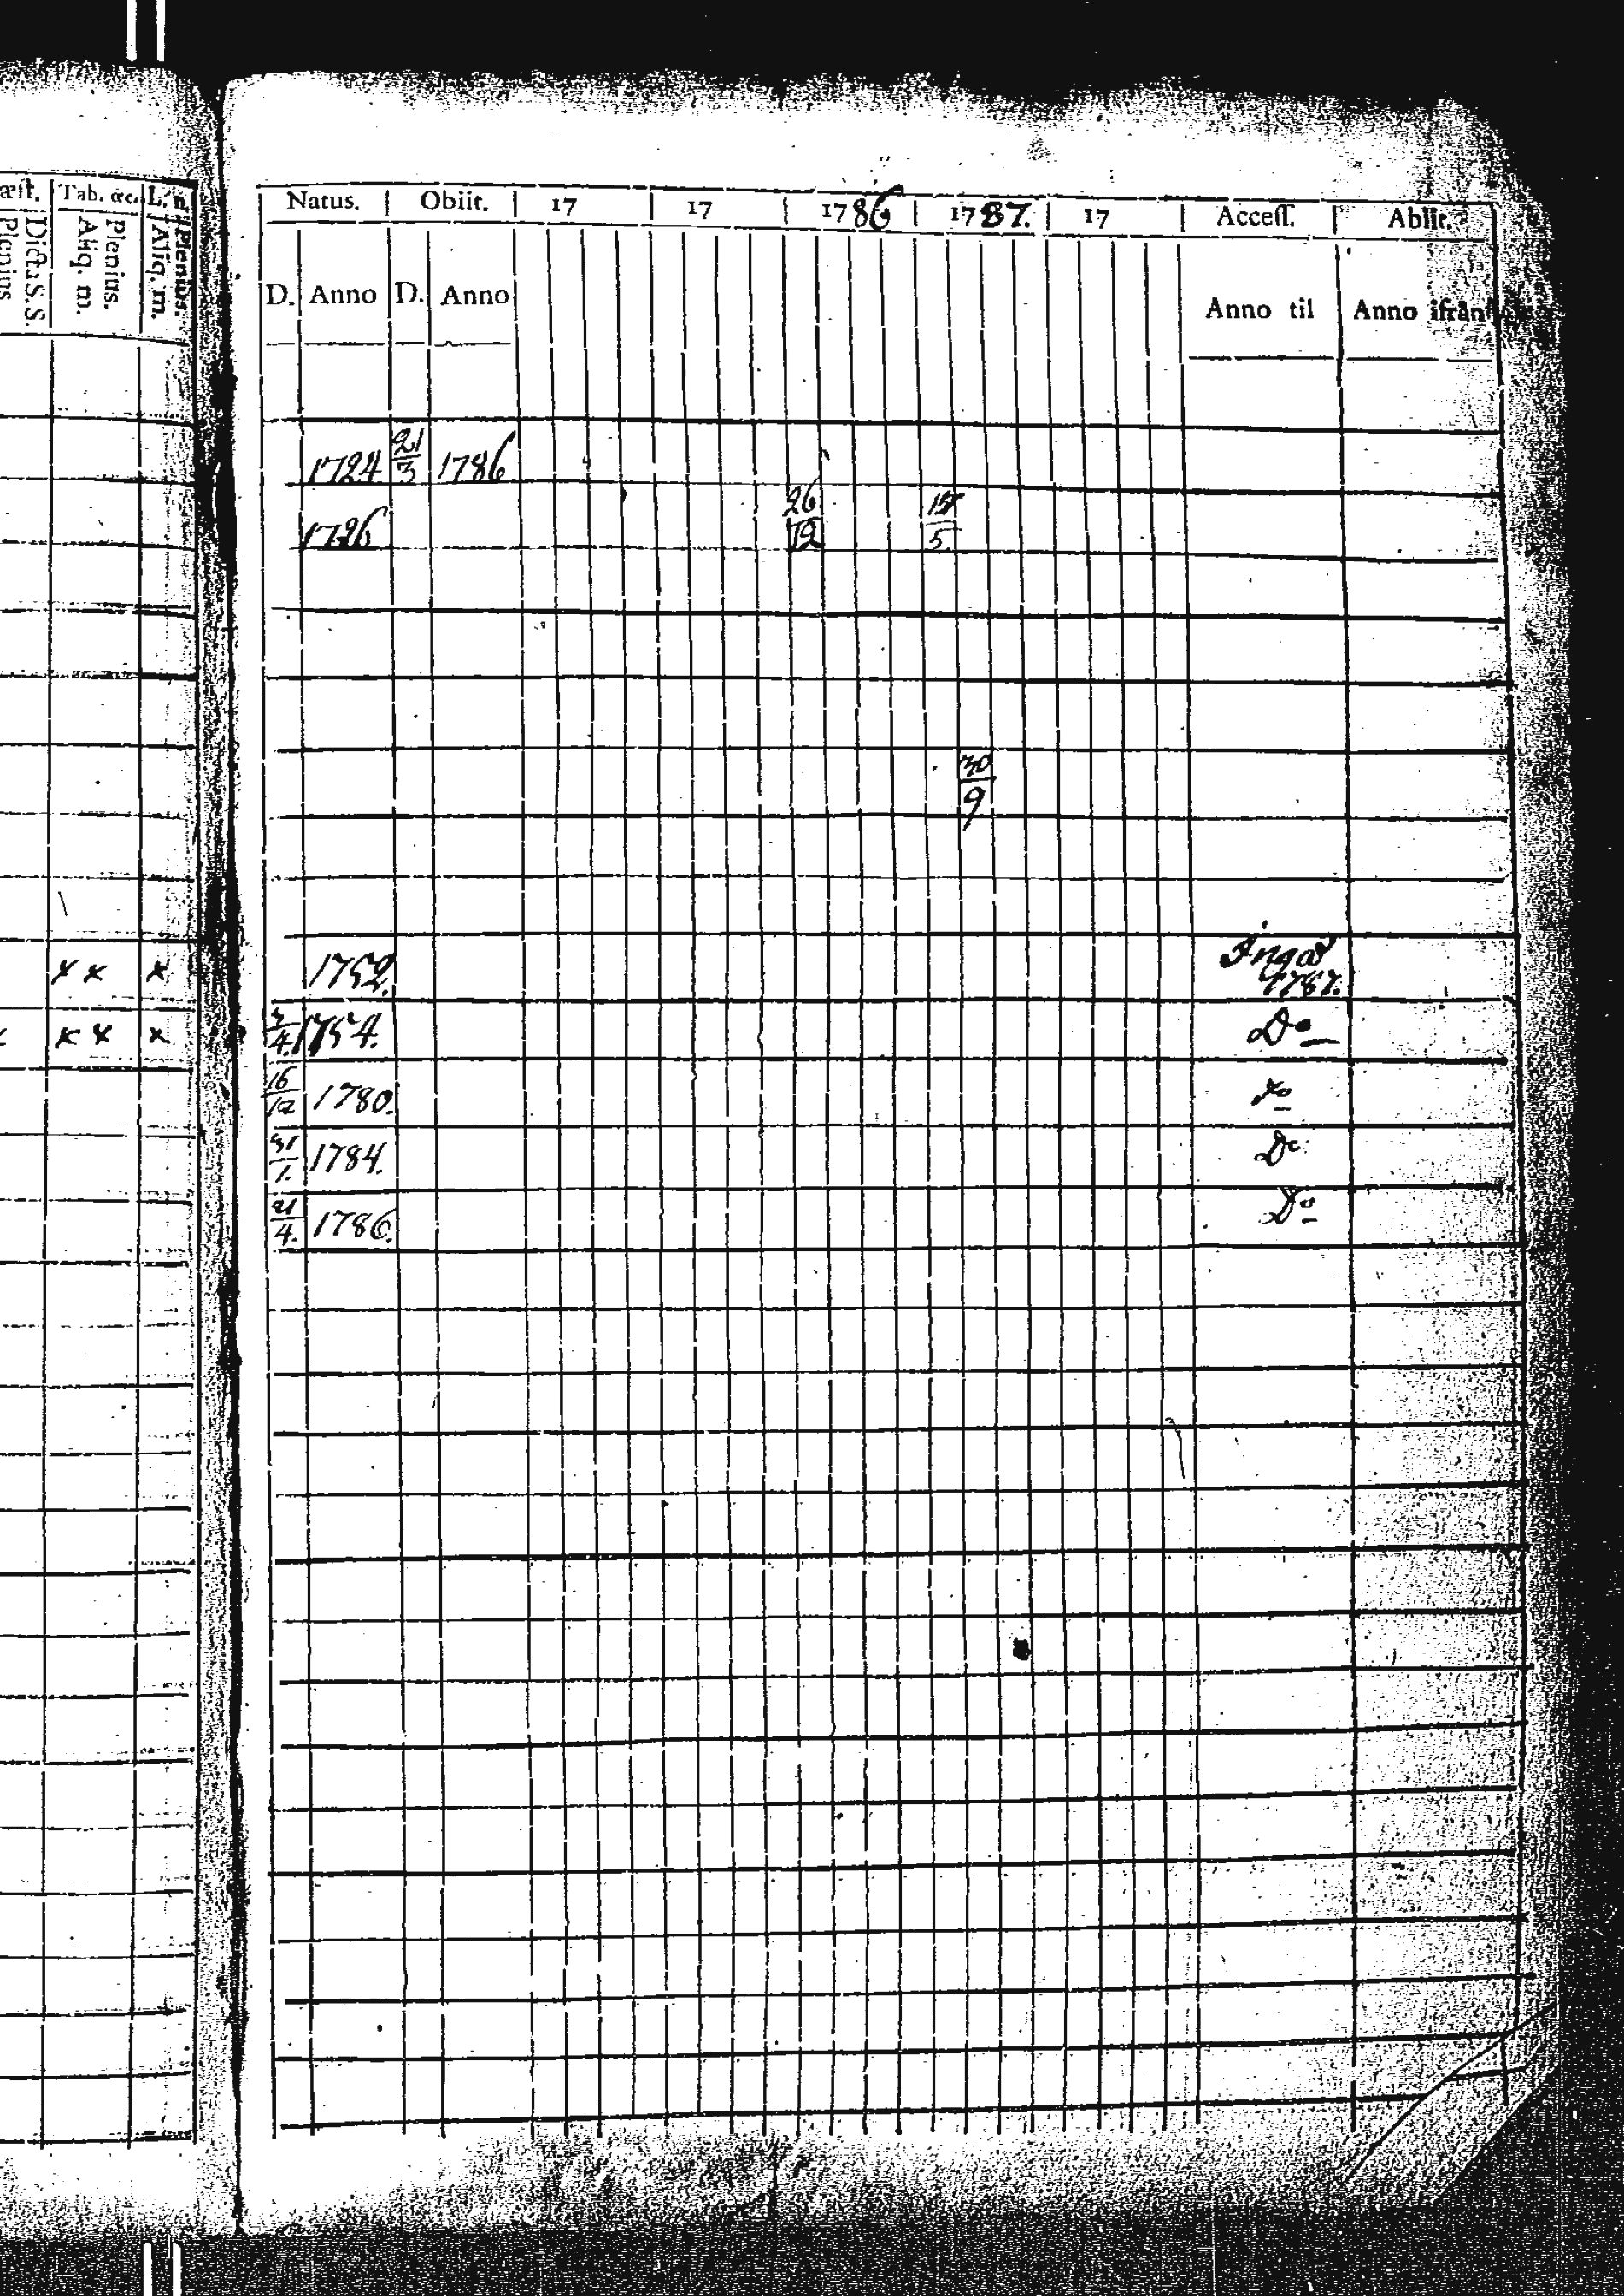 æst. Tab. &c. L. n.
Plenius Dict. S. S. Aliq. m. Plenius. Aliq. m. Plenius.
x x x
x x x x
Natus. Obiit. 17 17 1786 1787. 17 Access. Abiit.
D. Anno D. Anno Anno til Anno ifrån
1724 21/3 1786
1726 26/12 5.
30/9
1752. 1787.
3/4. 1754. Do
16/12 1780. Do
31/1. 1784. Do
21/4. 1786. Do